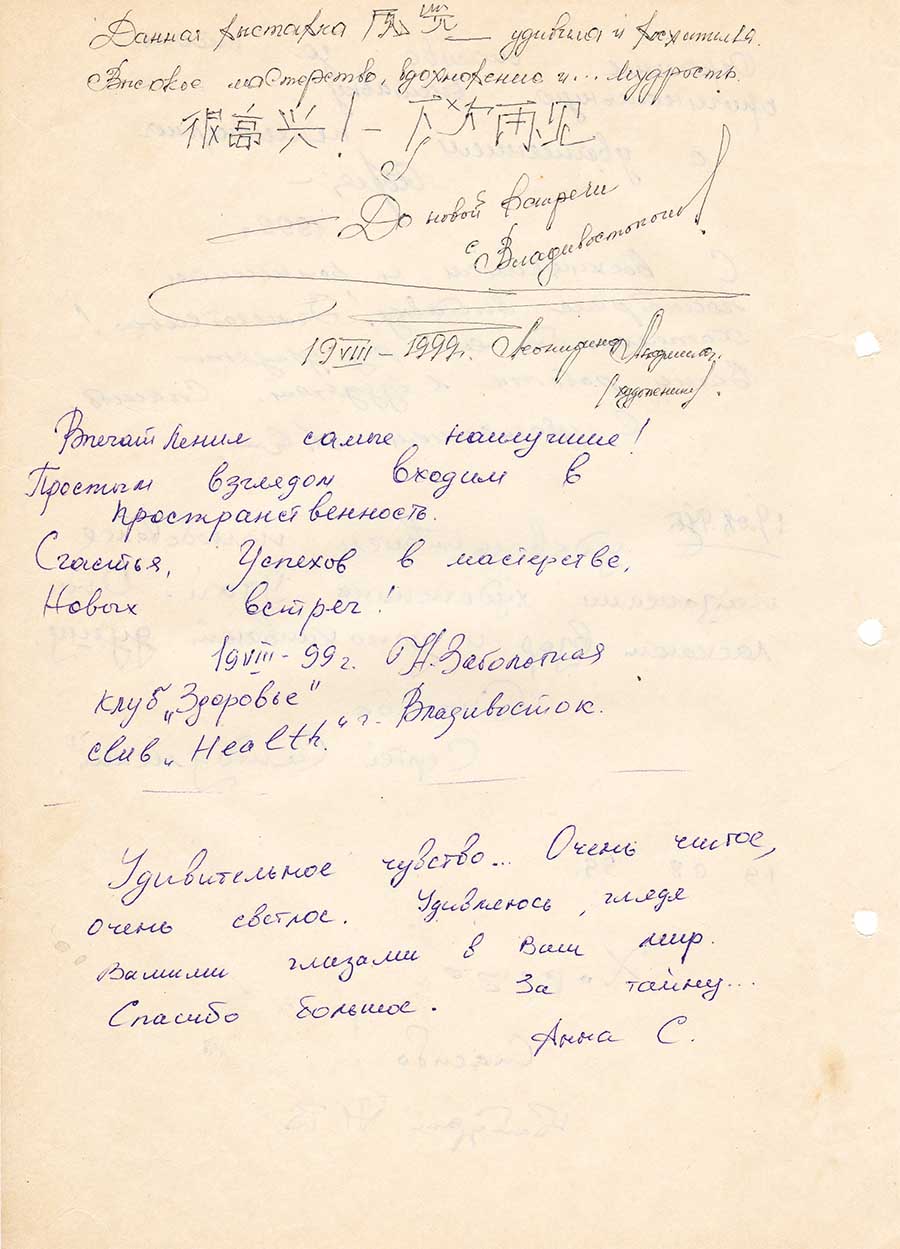 Данная выставка 风景 — удивила и восхитила.
Высокое мастерство, вдохновение и... мудрость.
很高兴! – 下次再见
До новой встречи
с Владивостоком!
19VIII – 1999г. Людмила.
(художник).
Впечатления самые наилучшие!
Простым взглядом входим в
пространственность.
Счастья, Успехов в мастерстве,
Новых встреч!
19VIII - 99 г. Н. Заболотная
Клуб „Здоровье"
г. Владивосток.
club „Health."
Удивительное чувство... Очень чистое,
очень светлое. Удивляюсь, глядя
Вашими глазами в Ваш мир.
Спасибо большое. За тайну...
Анна С.